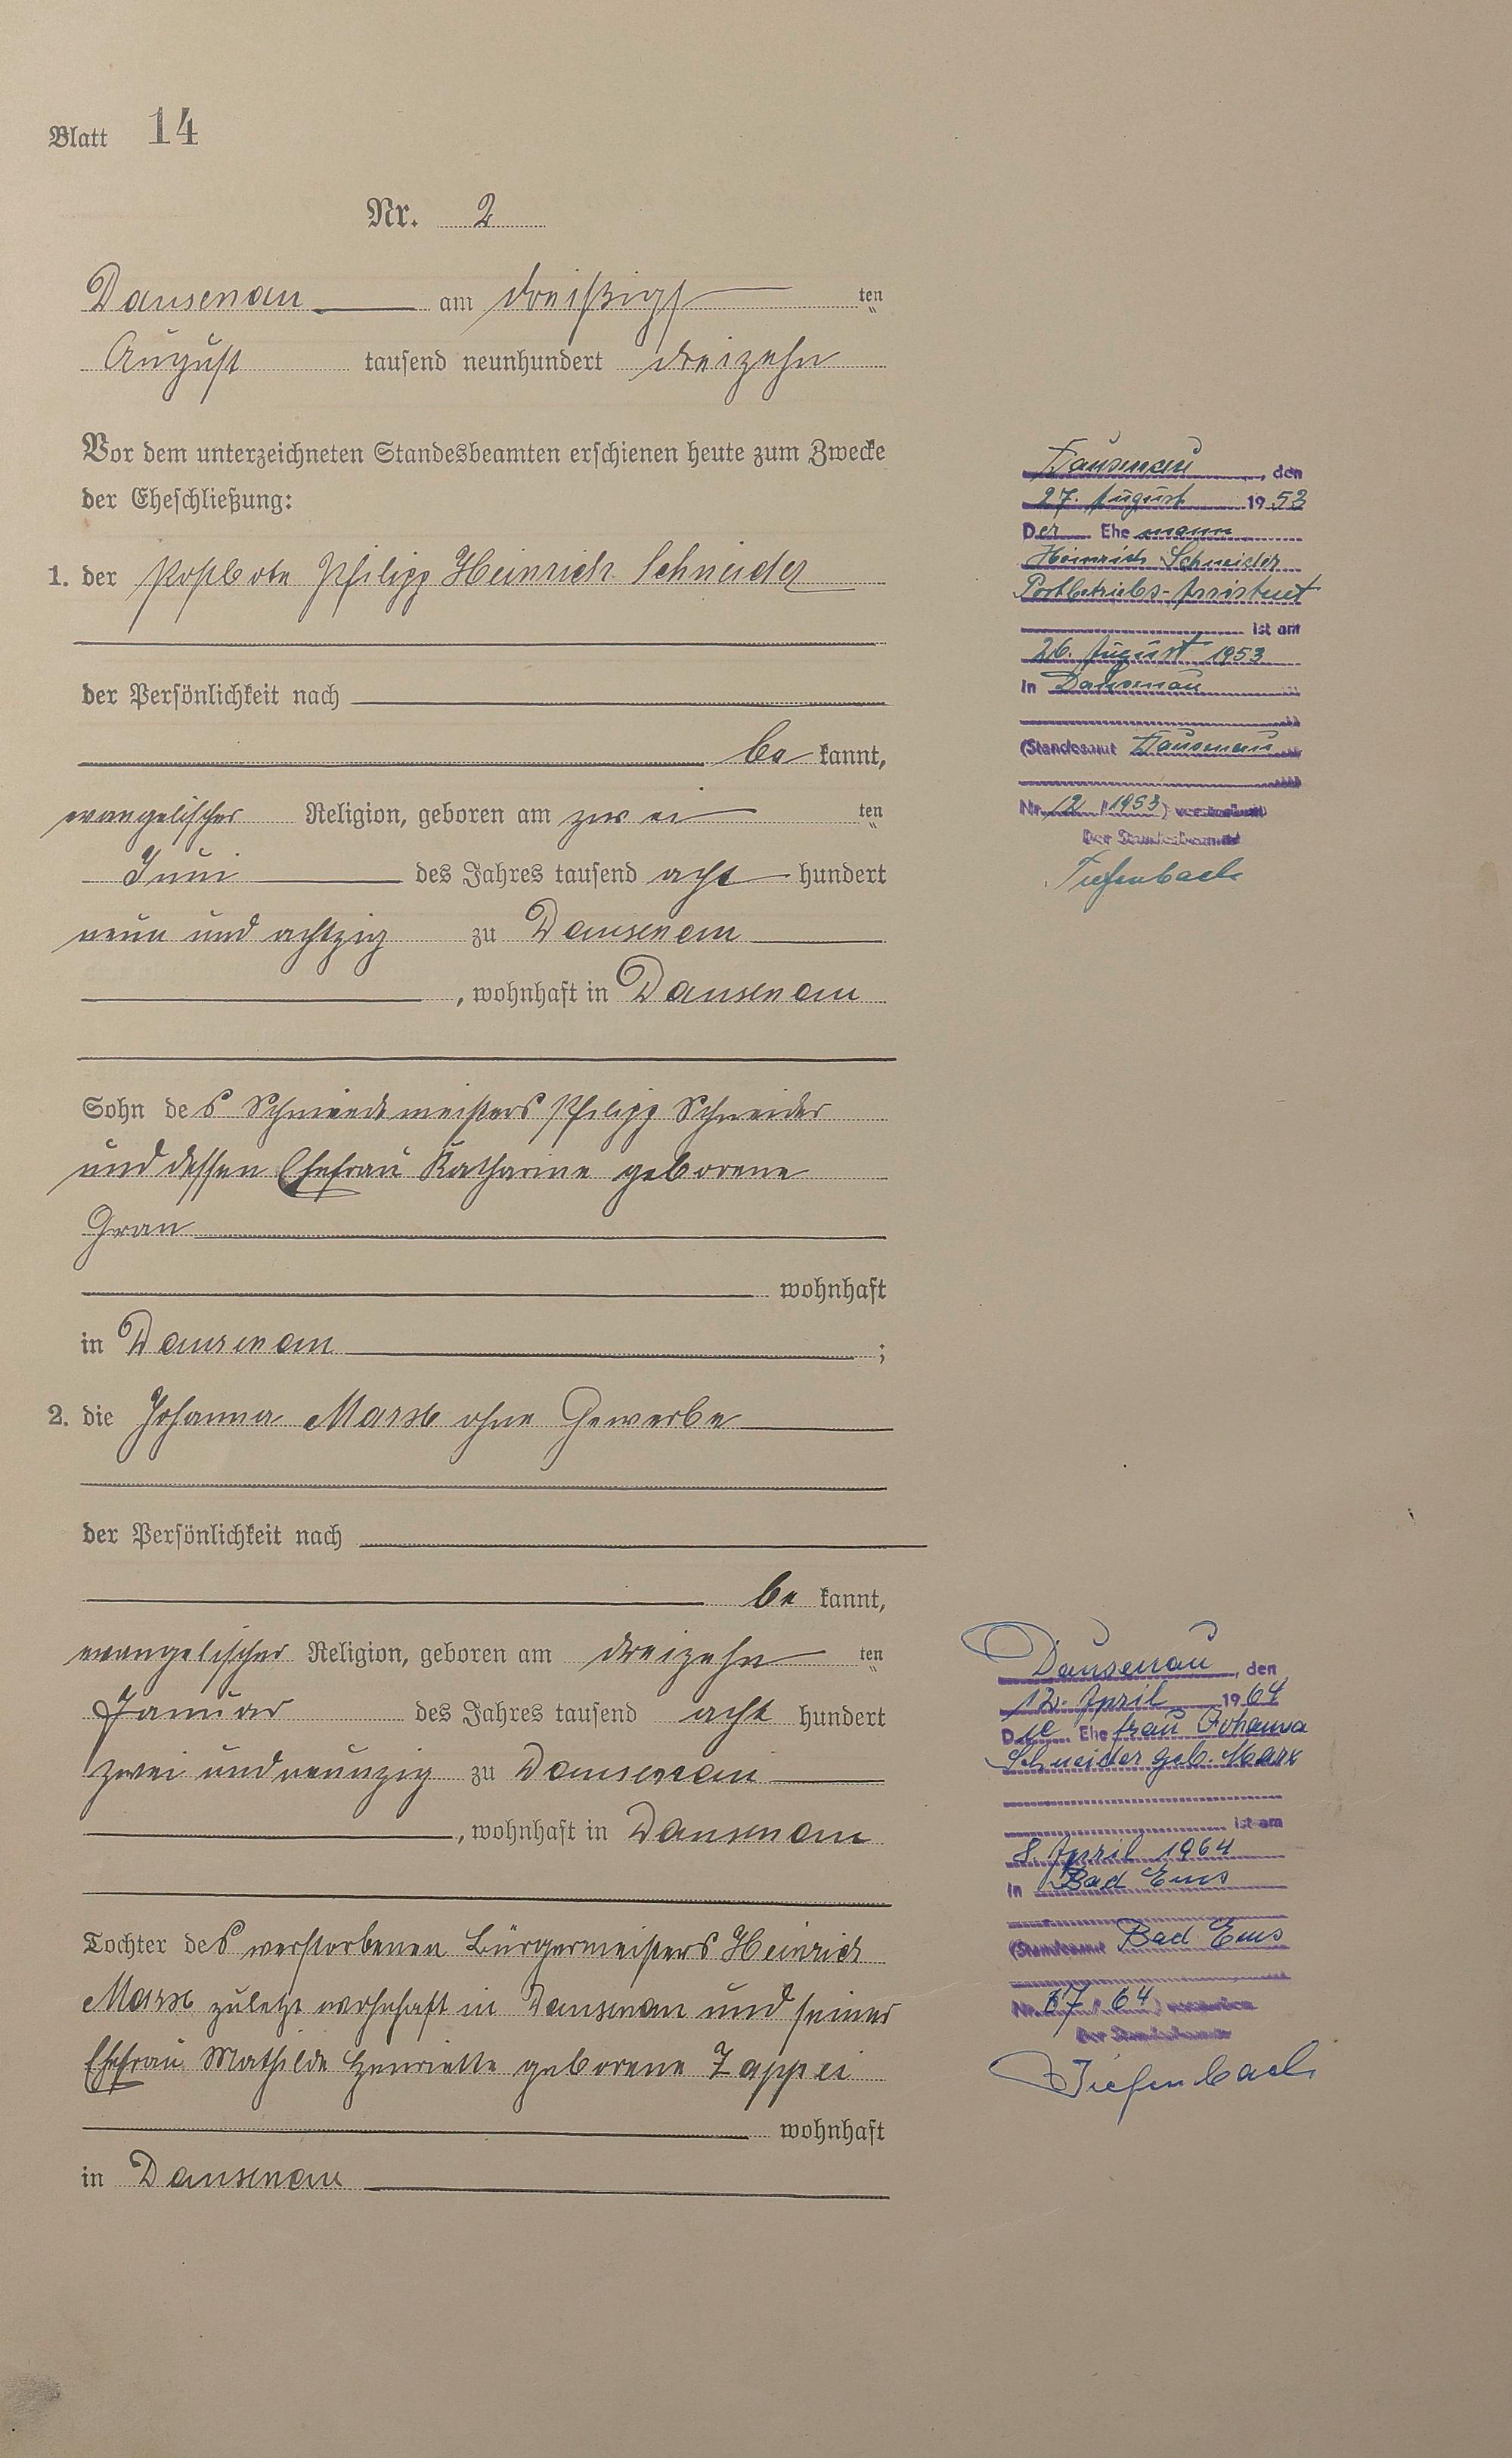 Blatt 14
Nr. 2
Dausenau am dreißigsten
August tausend neunhundert dreizehn
Vor dem unterzeichneten Standesbeamten erschienen heute zum Zwecke
der Eheschließung:
1. der Postbote Philipp Heinrich Schneider
der Persönlichkeit nach
be kannt,
evangelischer Religion, geboren am zwei ten
Juni des Jahres tausend acht hundert
neun und achtzig zu Dausenau
, wohnhaft in Dausenau
Sohn des Schmiedemeisters Philipp Schneider
und dessen Ehefrau Katharine geborene
wohnhaft
in Dausenau ;
2. die Johanna Marx ohne Gewerbe
der Persönlichkeit nach
be kannt,
evangelischer Religion, geboren am dreizehn ten
Januar des Jahres tausend acht hundert
zwei und neunzig zu Dausenau
, wohnhaft in Dausenau
Tochter des verstorbenen Bürgermeisters Heinrich
Marx zuletzt wohnhaft in Dausenau und seiner
Ehefrau Mathilde Henriette geborene Zappei
wohnhaft
in Dausenau
Dausenau, den
27. August 1953
Der Ehemann
Heinrich Schneider
Postbetriebs-Assistent
ist am
26. August 1953
in Dausenau
(Standesamt Dausenau
Nr. 12/1953) verstorben
Der Standesbeamte
Tiefenbach
Dausenau, den
12. April 1964
Die Ehefrau Johanna
Schneider geb. Marx
ist am
8. April 1964
in Bad Ems
(Standesamt Bad Ems
Nr. 67/64) verstorben
Der Standesbeamte
Tiefenbach